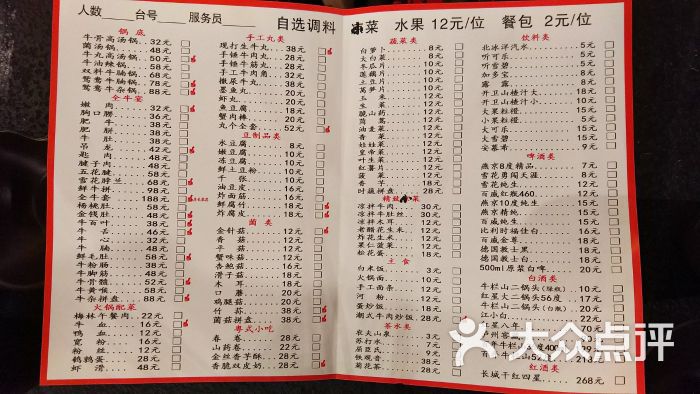 人数____台号____服务员____ 自选调料 凉菜 水果 12元/位 餐包 2元/位
锅底
牛骨高汤锅 32元
菌汤锅 48元
牛丸高汤锅 50元
牛油辣锅 58元
双料牛腩锅 68元
鸳鸯牛腩锅 78元
鸳鸯牛杂锅 88元
全牛宴
嫩肉 32元
胸口朥 36元
肥牛 38元
肥胼 38元
牛肚 38元
吊龙 42元
匙肉 48元
腱子肉 48元
五花腱 58元
雪花脖兰 68元
鲜牛拼 98元
全牛套 188元
杨桃肚 58元
金钱肚 48元
牛百叶 38元
牛舌 46元
牛心 32元
牛腩 48元
鲜毛肚 58元
牛粉肠 38元
牛脚筋 48元
牛髓骨 58元
牛黄喉 58元
牛杂拼盘 88元
火锅配菜
梅林午餐肉 22元
牛血 12元
鸭血 12元
宽粉 16元
粉丝 12元
鹌鹑蛋 28元
虾滑 48元
手工丸类
现打生牛丸 38元
手锤牛肉丸 28元
手锤牛筋丸 28元
手工牛肉角 32元
撒尿牛丸 38元
墨鱼丸 20元
虾丸 20元
鱼豆腐 18元
蟹肉棒 20元
丸个全套 52元
豆制品类
水豆腐 8元
嫩豆腐 10元
冻豆腐 10元
鲜土豆粉 10元
千张 10元
油豆皮 16元
炸面筋 16元
鲜腐竹 18元
炸腐皮 18元
菌类
金针菇 12元
香菇 12元
平菇 12元
蟹味菇 16元
杏鲍菇 16元
滑子菇 16元
木耳 18元
口菌 20元
鸡腿菇 20元
竹荪 38元
菌菇拼盘 38元
粤式小吃
春卷 28元
山药卷 22元
金丝香芋酥 28元
香脆双皮奶 28元
蔬菜类
白萝卜 8元
大白菜 8元
冬瓜片 10元
莲藕片 10元
土豆片 10元
莴笋片 10元
玉米 12元
生菜 12元
脆山药 12元
茼蒿 12元
油麦菜 12元
香菜 12元
娃娃菜 12元
皇帝菜 12元
叶生菜 12元
红薯片 12元
菠菜 12元
香芋 18元
叶蔬拼盘 28元
精致小菜
凉拌牛肉 30元
凉拌牛肚丝 30元
凉拌木耳 12元
老醋花生米 12元
炸花生米 12元
果仁菠菜 12元
松花蛋 18元
主食
白米饭 3元
火锅面 10元
手工面 12元
河粉 12元
蛋炒饭 18元
潮式牛肉炒饭 28元
茶水类
农夫山泉 3元
苏打水 7元
屈臣氏 9元
铁观音 38元
菊花茶 28元
饮料类
北冰洋汽水 5元
听可乐 5元
听雪碧 5元
加多宝 8元
露露 8元
开卫山楂汁大 28元
开卫山楂汁小 10元
大果粒橙 15元
小果粒橙 5元
大可乐 15元
大雪碧 15元
安慕希 9元
啤酒类
燕京8度精品 7元
雪花勇闯天涯 8元
雪花纯生 12元
百威红瓶460 12元
燕京10度纯生 12元
燕京精纯 12元
百威纯生 15元
比利时福佳白 16元
百威金尊 18元
德国教士黑 18元
德国教士白 18元
500ml原浆白啤 20元
白酒类
牛栏山二锅头
红星二锅头56度 17元
牛栏山二锅头
江小白 22元
红星八年
长城干红四星 268元
红酒类
大众点评